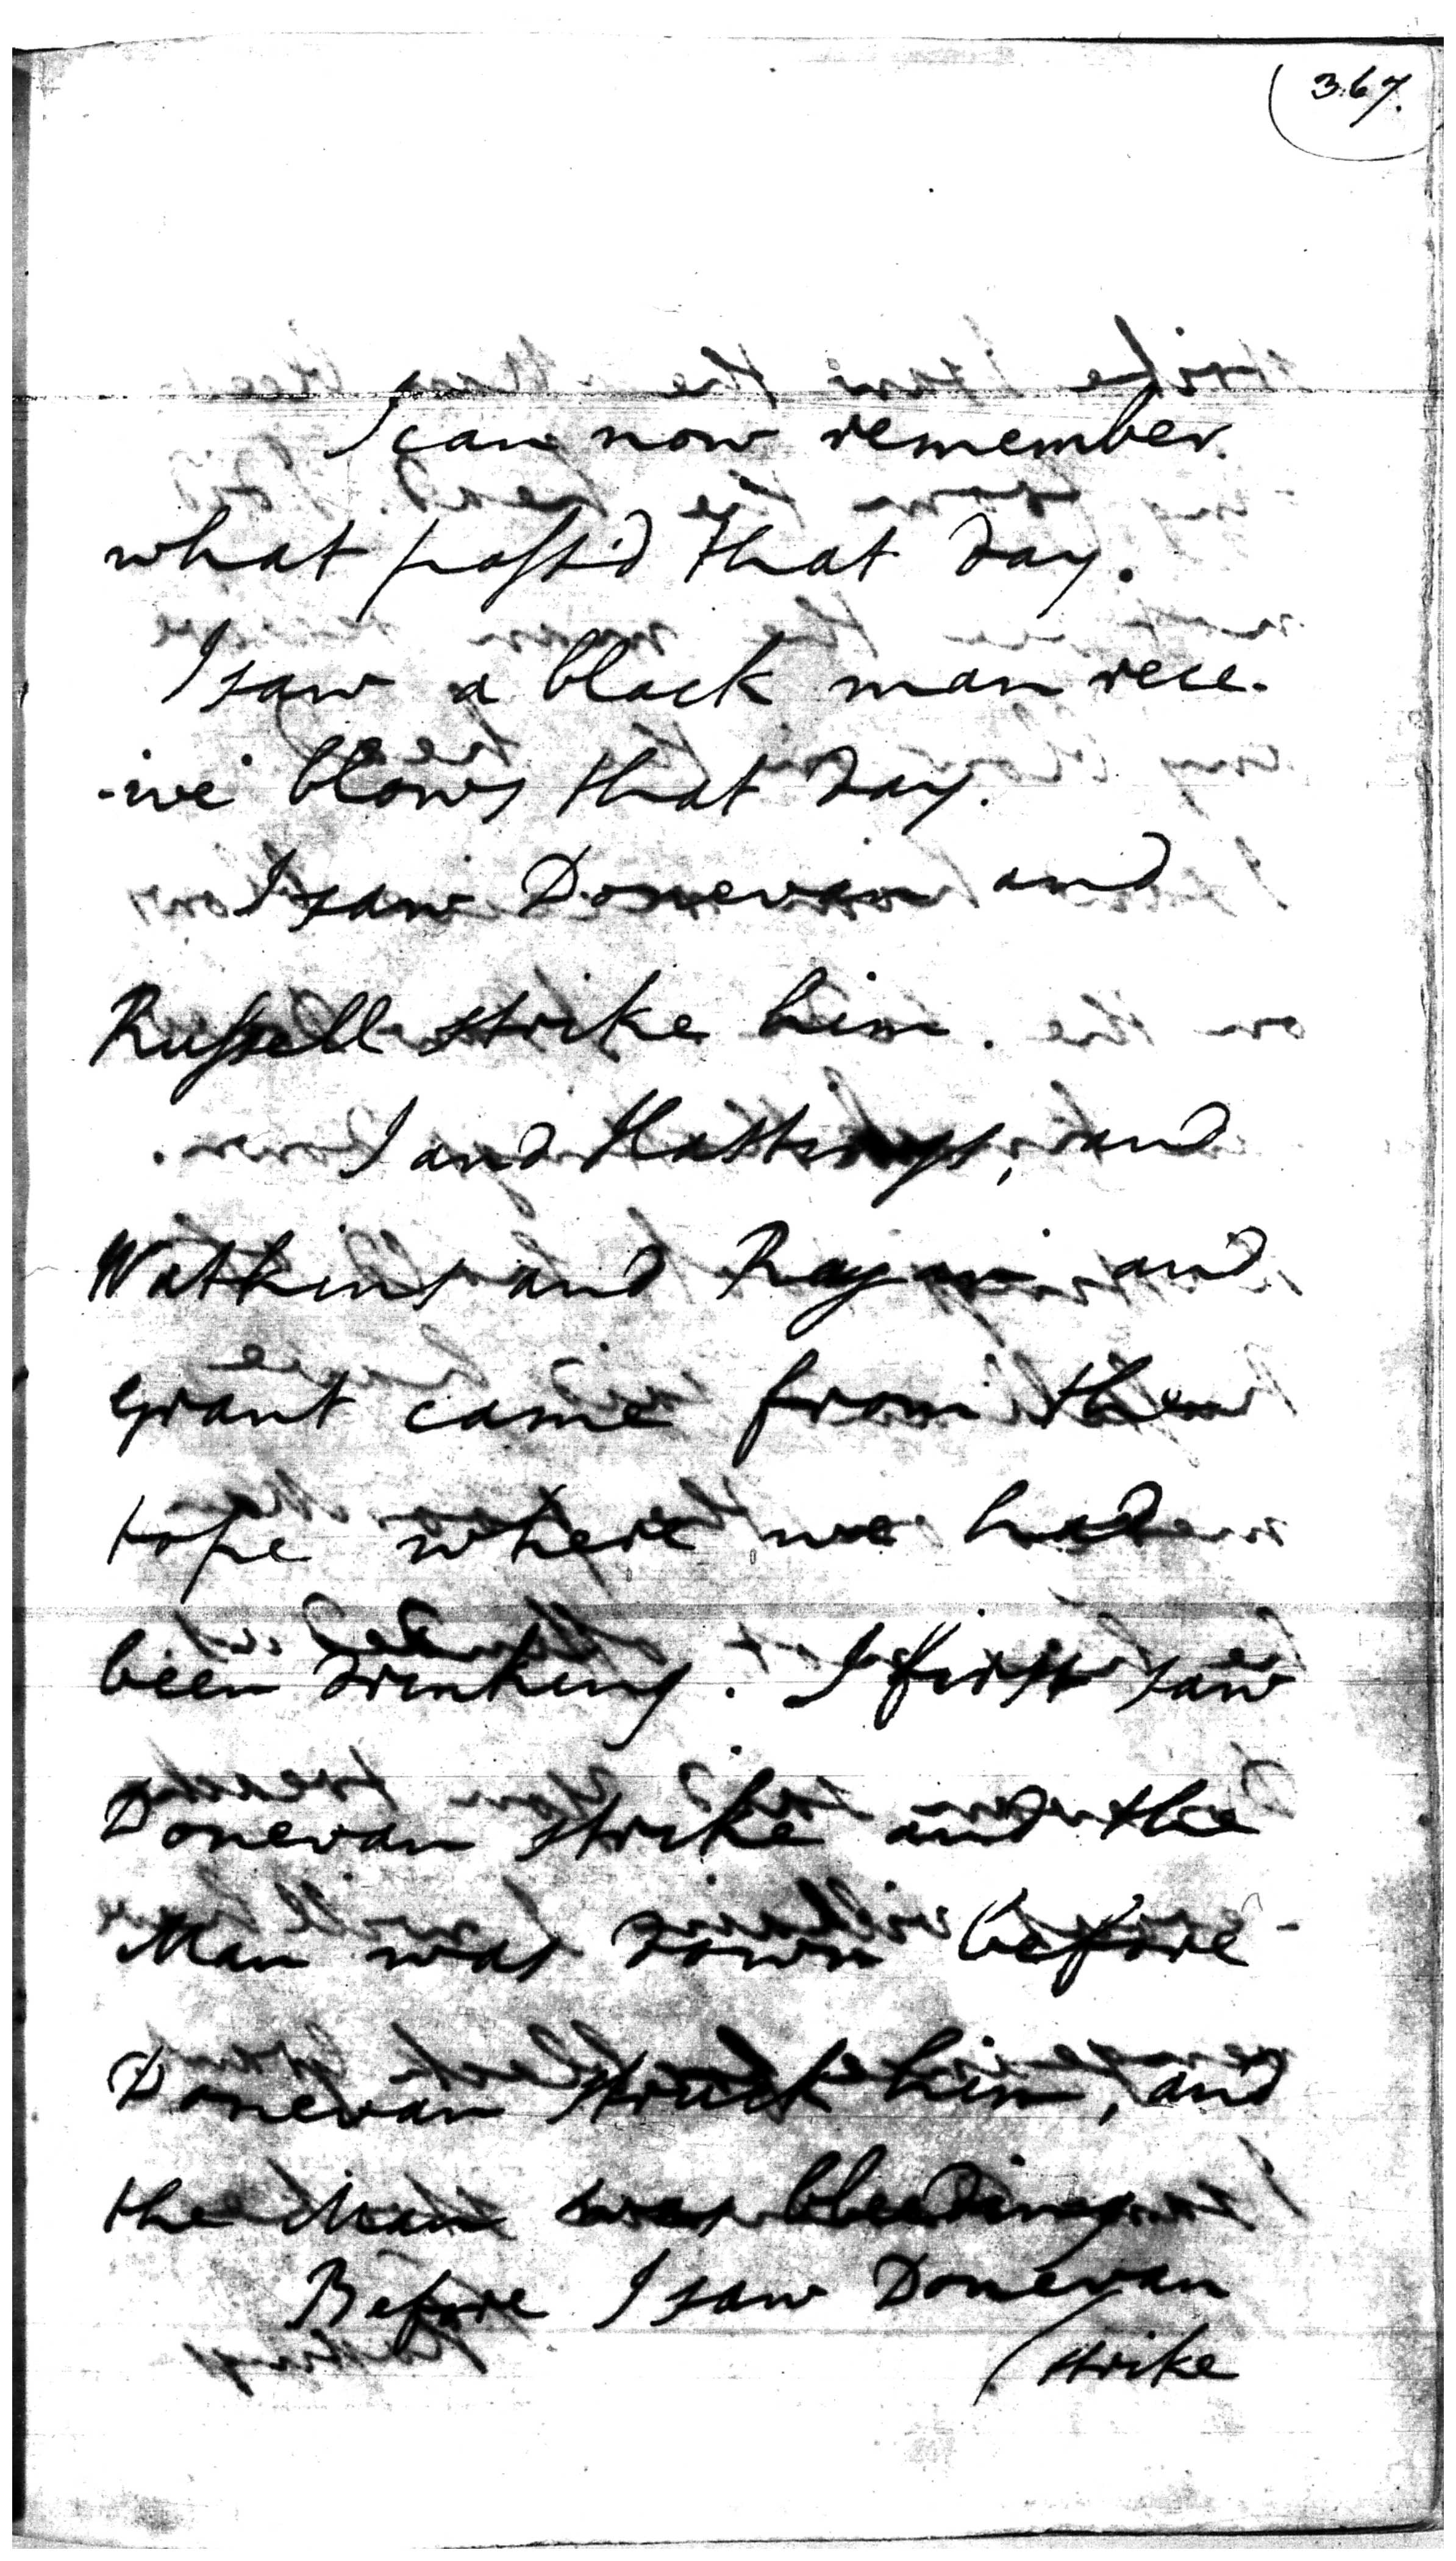 367.
I can now remember
what pass'd that day.
I saw a black man rece-
-ive blows that day.
I saw Donevan and
Russell strike him.
I and Hastings, and
Watkins and Ragan and
Grant came from the
tope where we had
been drinking. I first saw
Donevan strike and the
Man was down before
Donevan struck him, and
the Man was bleeding
Before I saw Donevan
strike